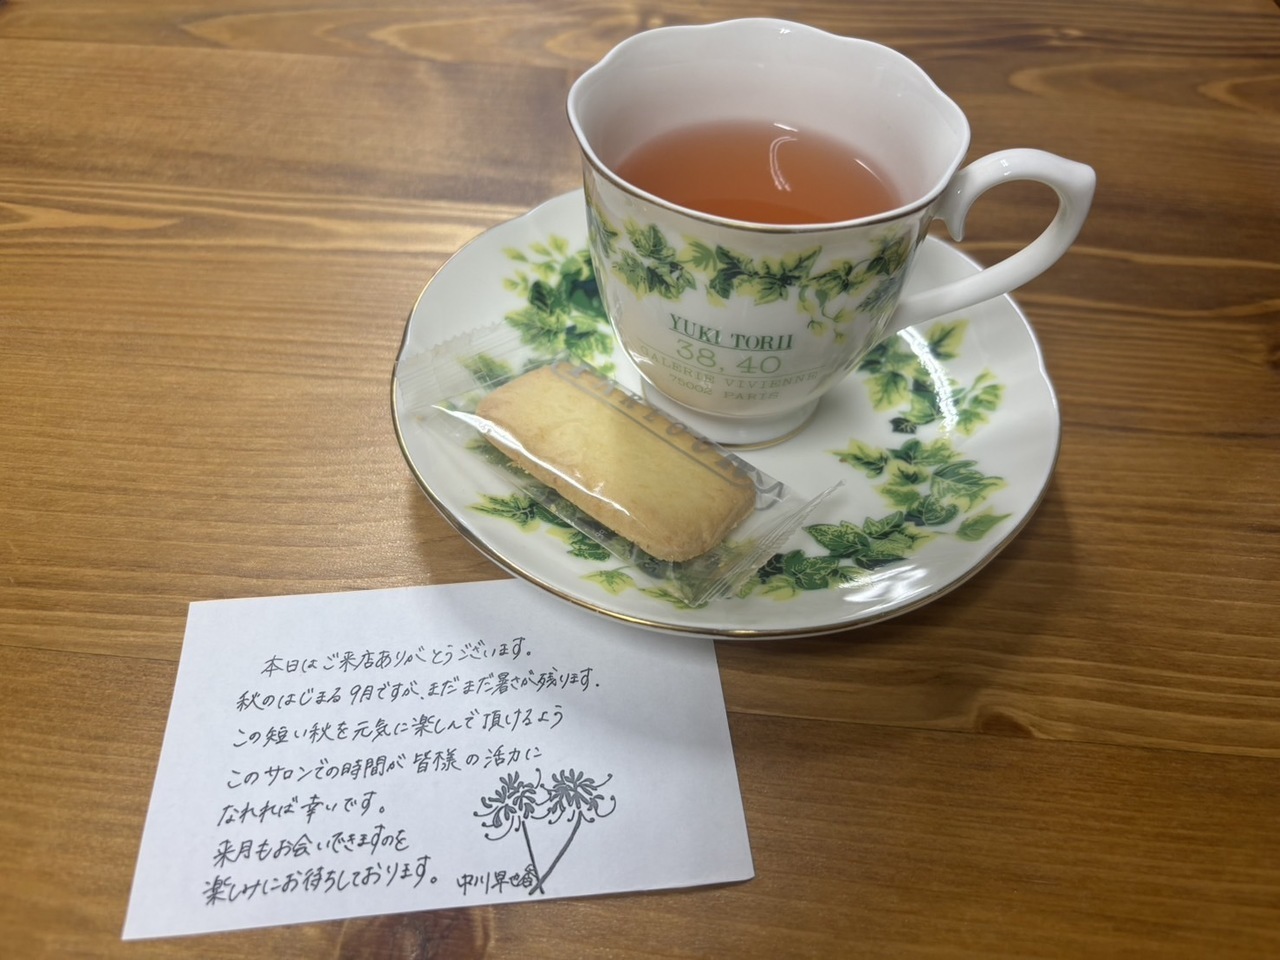 YUKI TORII
38, 40
GALERIE VIVIENNE
75002 PARIS
本日はご来店ありがとうございます。
秋のはじまる9月ですが、まだまだ暑さが残ります。
この短い秋を元気に楽しんで頂けるよう
このサロンでの時間が皆様の活力に
なれれば幸いです。
来月もお会いできますのを
楽しみにお待ちしております。
中川早也香